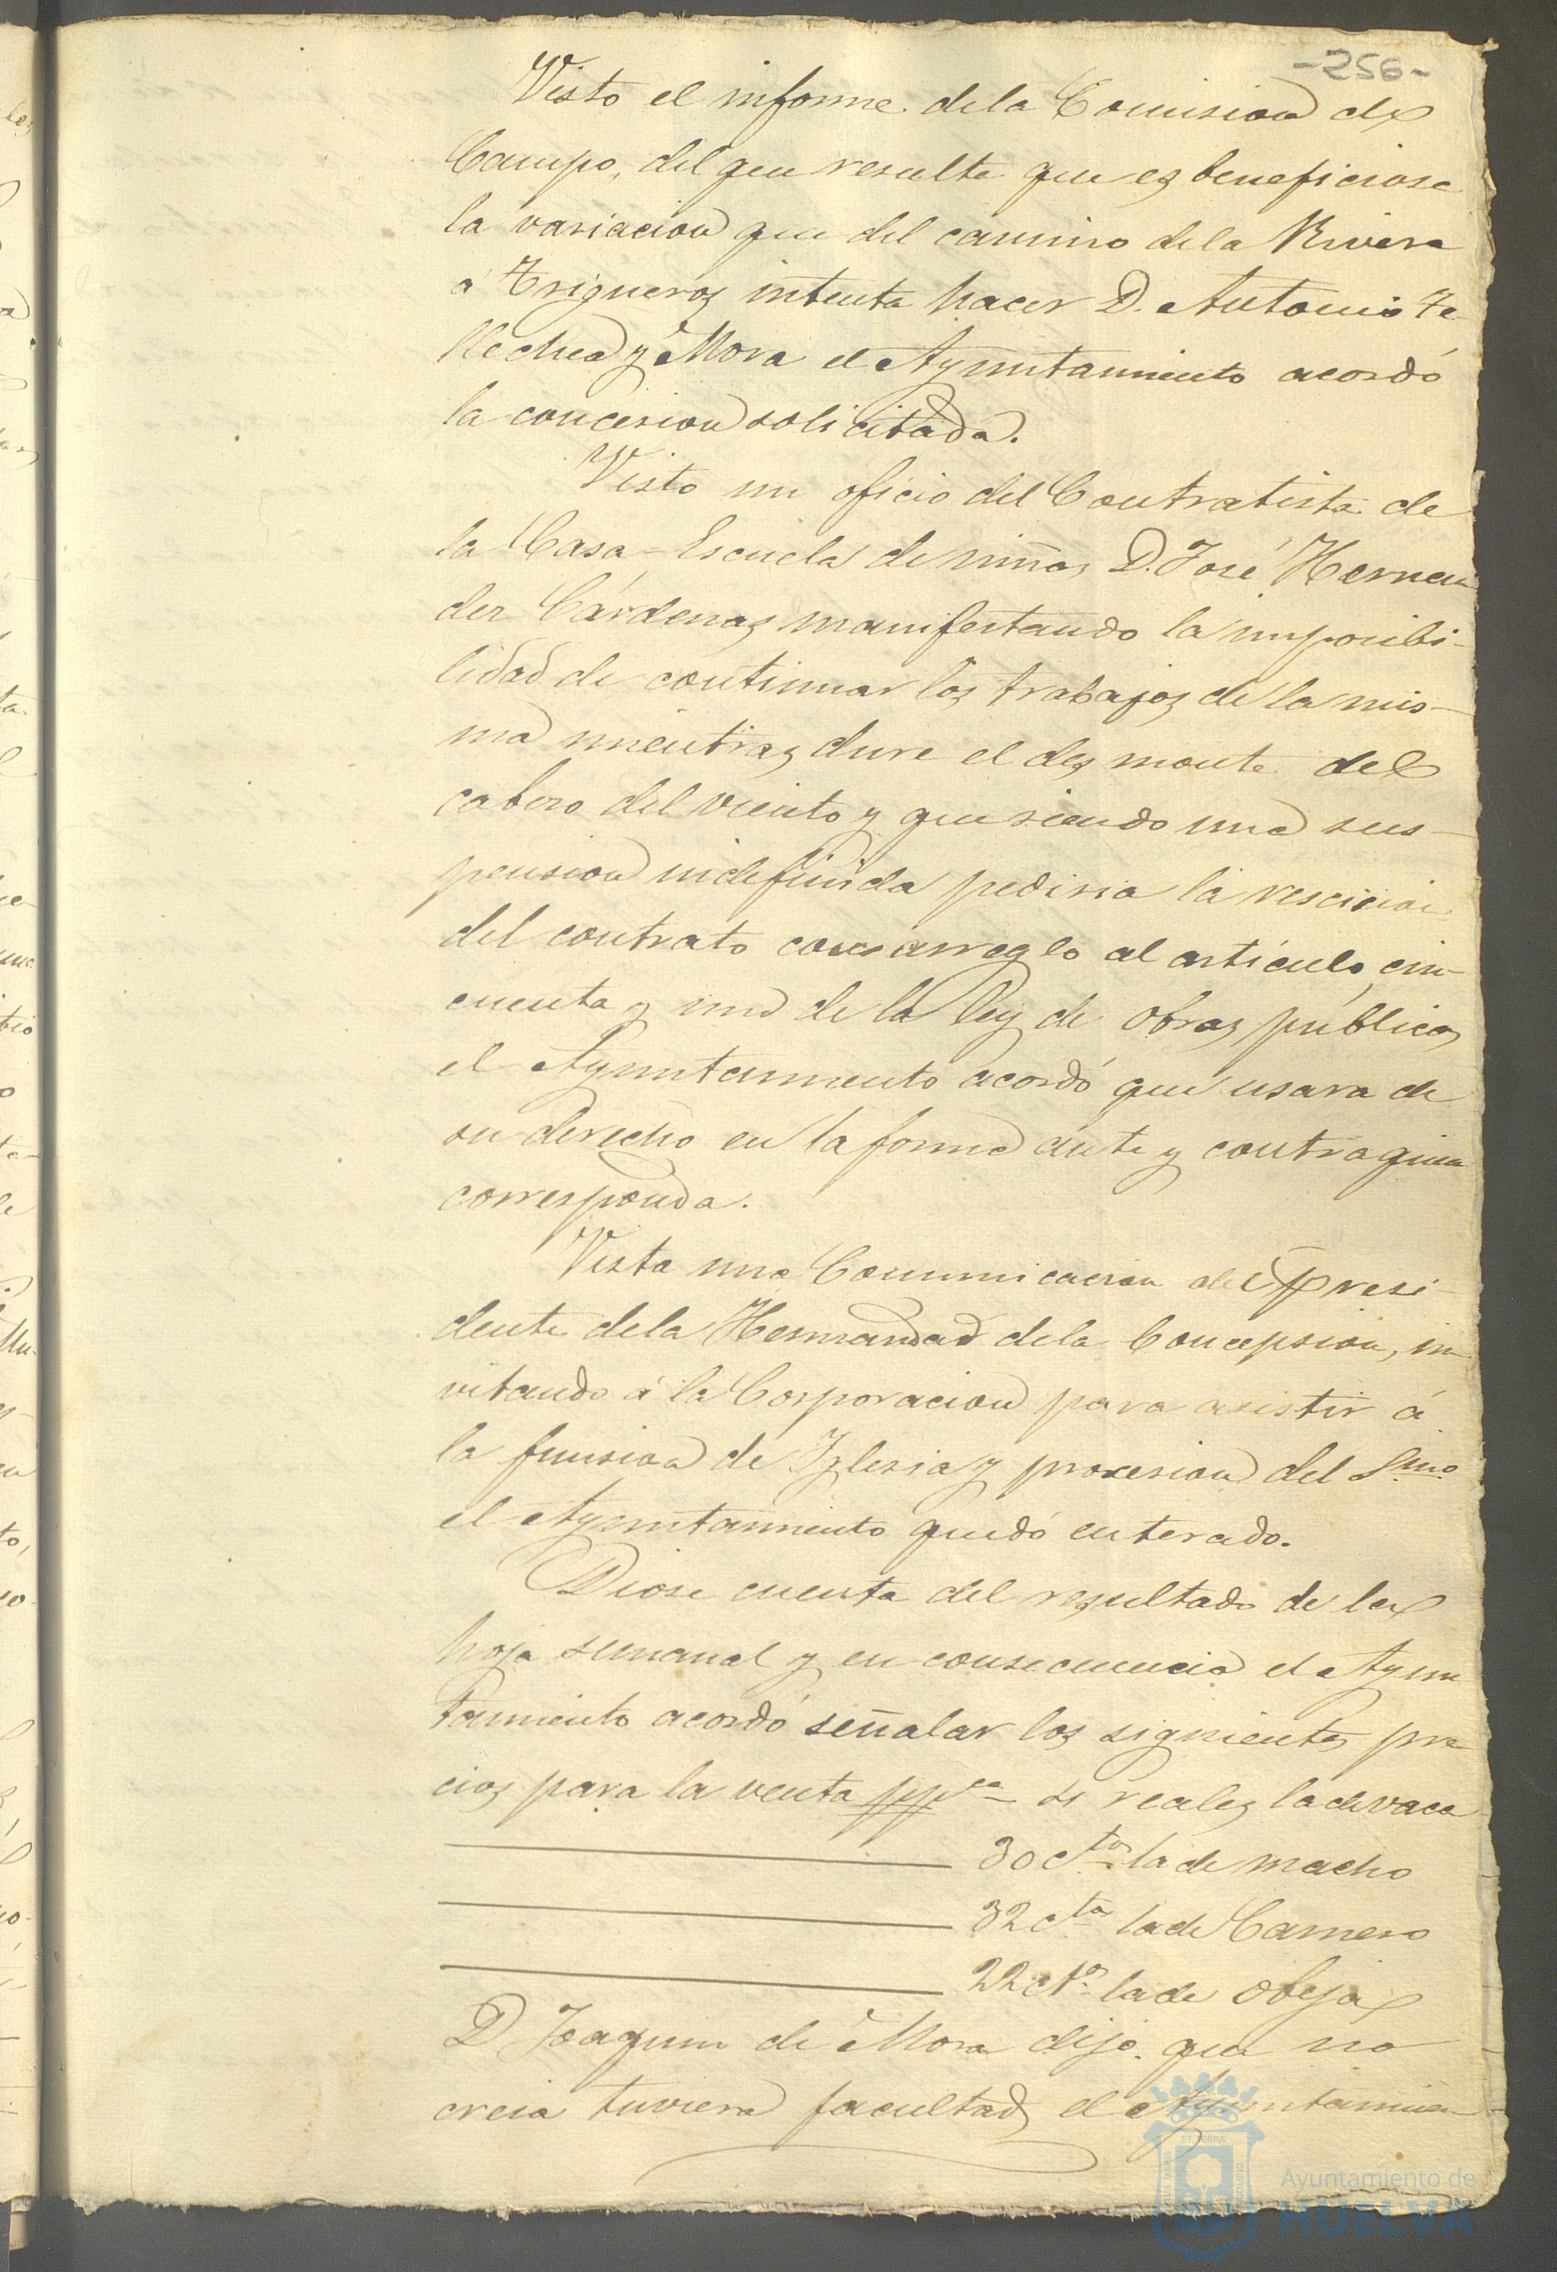 -256-
Visto el informe de la Comision del
Campo, del que resulta que es beneficiosa
la variacion que del camino de la Rivera
á Trigueros intenta hacer D. Antonio Te
llechea y Mora el Ayuntamiento acordó
la concesion solicitada.
Visto un oficio del Contratista de
la Casa-Escuela de niños D. José Hernan
dez Cárdenas manifestando la imposibi-
lidad de continuar los trabajos de la mis-
ma mientras dure el desmonte del
cabezo del viento y que siendo una sus-
pension indefinida pediria la rescicion
del contrato con arreglo al artículo cin-
cuenta y uno de la ley de obras públicas
el Ayuntamiento acordó que usara de
su derecho en la forma ante y contra quien
corresponda.
Vista una Comunicacion del Presi-
dente de la Hermandad de la Concepsion, in-
vitando á la Corporacion para asistir á
la funsion de Iglesia y procesion del Smo
el Ayuntamiento quedó enterado.
Diose cuenta del resultado de la
hoja semanal y en consecuencia el Ayun
tamiento acordó señalar los siguientes pre
cios para la venta ppca reales la de vaca
30 ctos la de macho
32 ctos la de Carnero
22 ctos la de Obeja
D Joaquin de Mora dijo que no
creia tuviera facultad el Ayuntamien
Ayuntamiento de
HUELVA